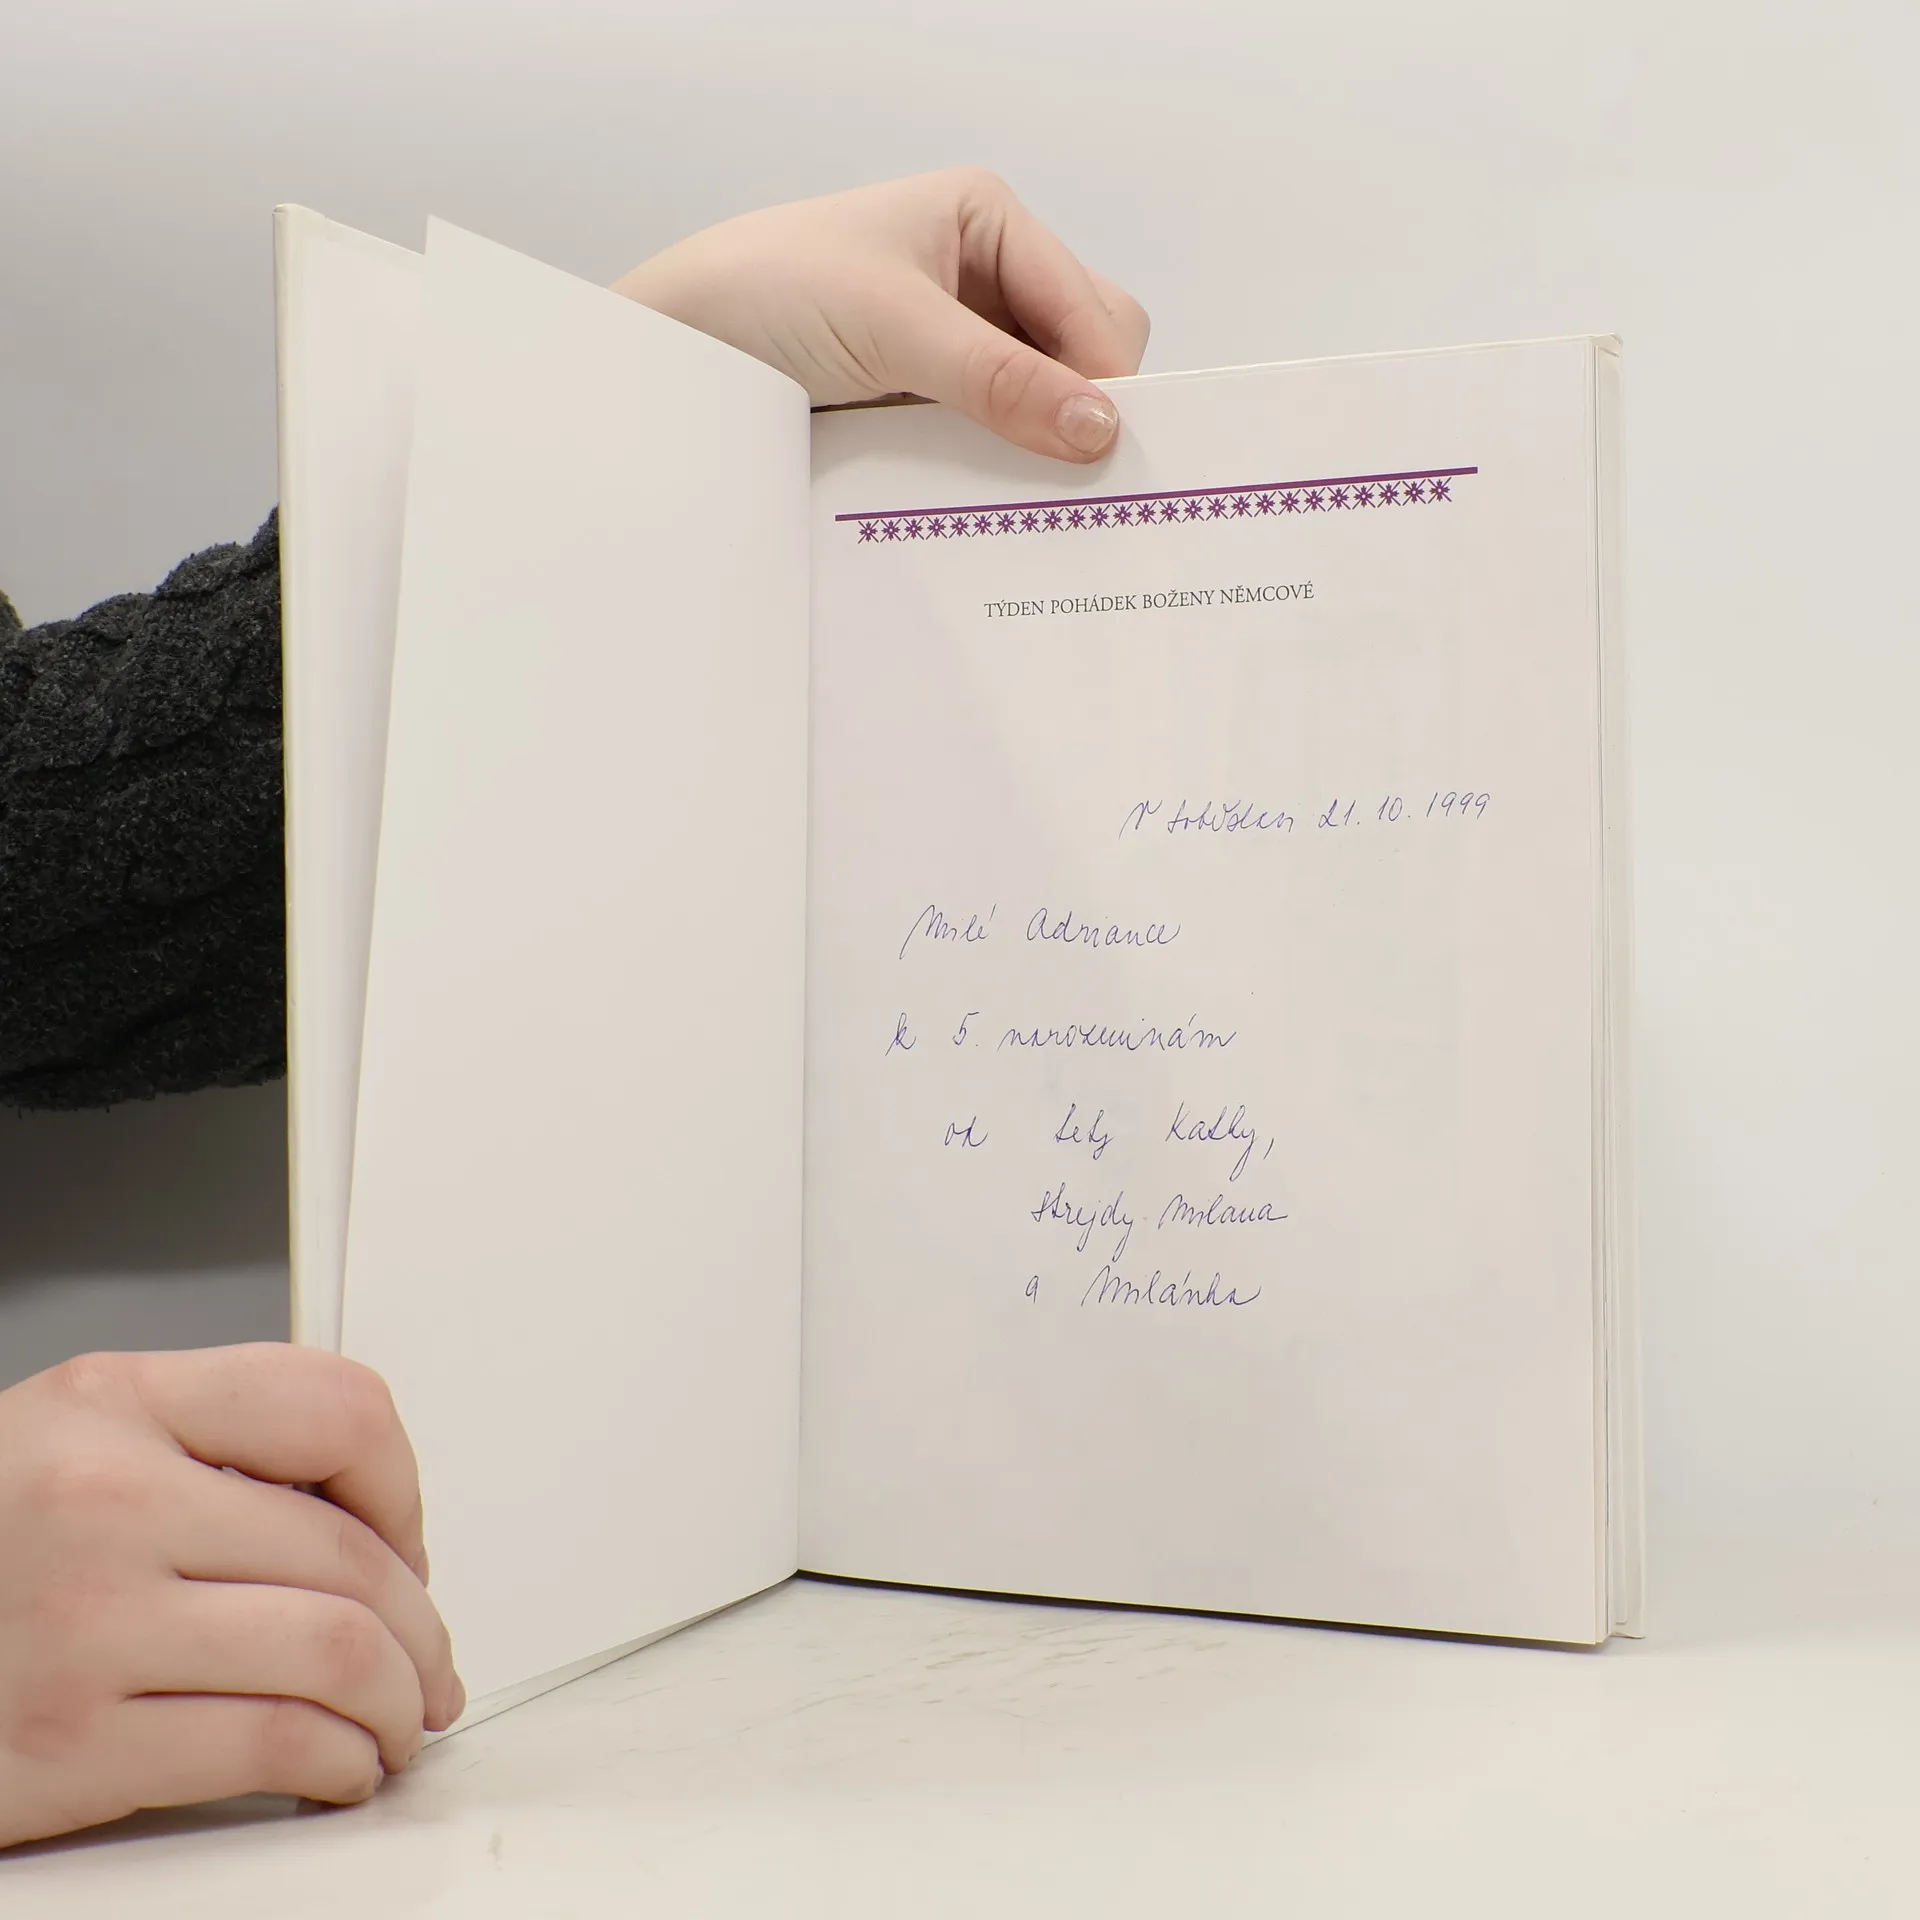 TÝDEN POHÁDEK BOŽENY NĚMCOVÉ
V Soběslavi 21. 10. 1999
Milé Adriance
k 5. narozeninám
od tety Katky,
strejdy Milana
a Milánka